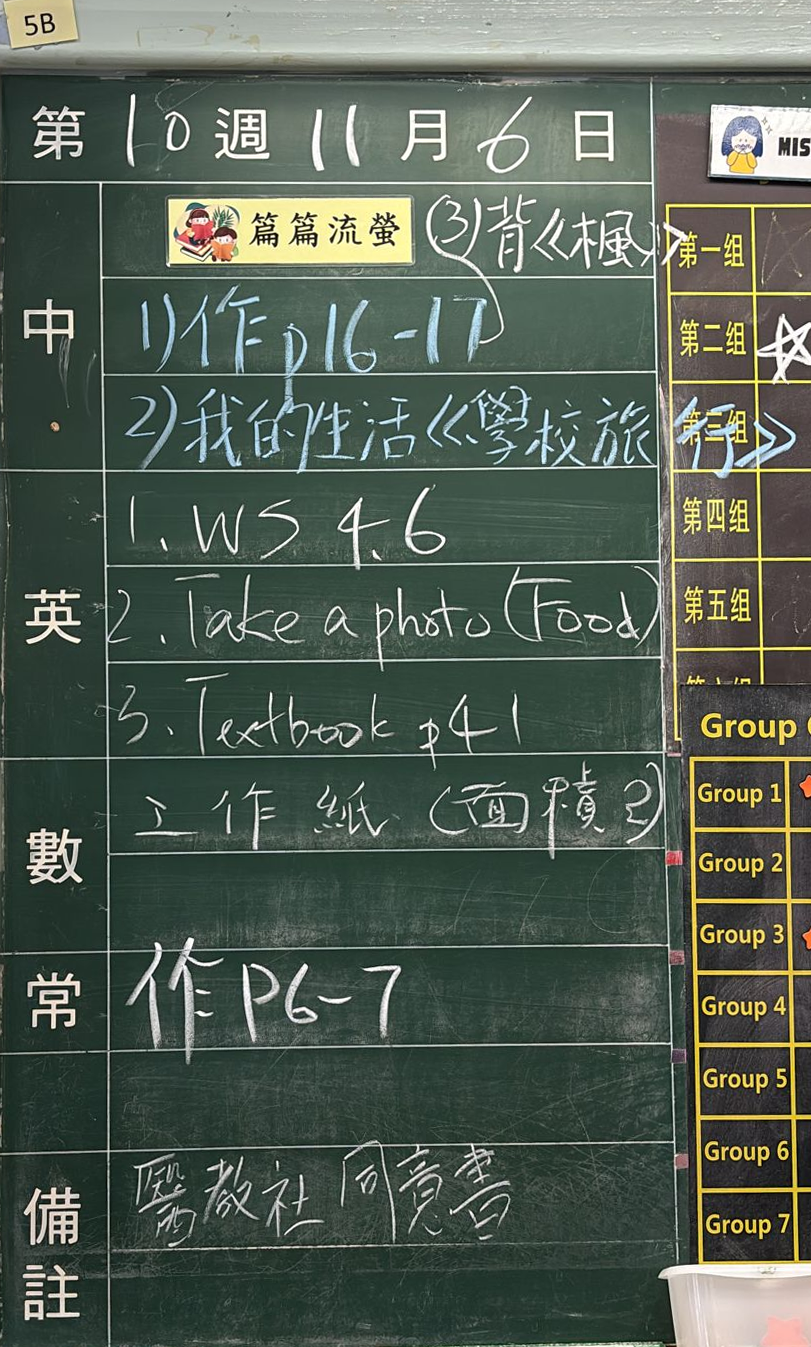 5B
第10週11月6日
MIS
中
篇篇流螢 (3)背《楓》
1)作p16-17
2)我的生活《學校旅行》
英
1. WS 4.6
2. Take a photo (Food)
3. Textbook p41
數
工作紙 (面積2)
常
作P6-7
備註
醫教社 同意書
第一組
第二組
第三組
第四組
第五組
Group
Group 1
Group 2
Group 3
Group 4
Group 5
Group 6
Group 7